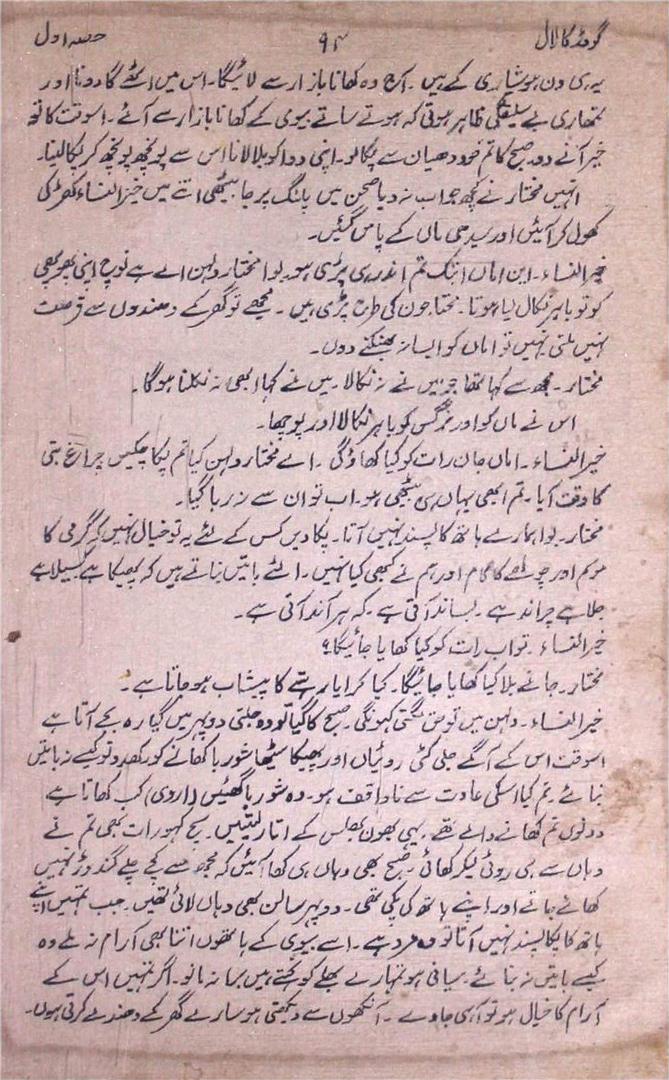 گودڑ کا لال ۹۴ حصہ اول
یہ ہی دن ہوشیاری کے ہیں۔ آج وہ کھانا بازار سے لائیگا۔ اس میں اٹھے گا دونا اور
تمھاری بے سلیقگی ظاہر ہوتی کہ ہوتے ساتے بیوی کے کھانا بازار سے آئے۔ اسوقت کا تو
خیر آنے دو۔ صبح کا تم خود دھیان سے پکالو۔ اپنی ددا کو بلالانا اس سے پونچھ پونچھ کر پکالینا۔
انہیں مختار نے کچھ جواب نہ دیا صحن میں پلنگ پر جا بیٹھی اتنے میں خیر النساء کھڑکی
کھول کر آئیں اور سیدھی ماں کے پاس گئیں۔
خیر النساء۔ این اماں ابتک تم اندر ہی پڑی ہو۔ بوا مختار دلہن اے ہے نوج اپنی پھوپھی
کو تو باہر نکال لیا ہوتا۔ محتاجوں کی طرح پڑی ہیں۔ مجھے تو گھر کے دھندوں سے فرصت
نہیں ملتی نہیں تو اماں کو ایسا نہ بھنکنے دوں۔
مختار۔ مجھ سے کہا تھا جو میں نے نہ نکالا۔ میں نے کہا ابھی نہ نکلنا ہوگا۔
اس نے ماں کو اور نرگس کو باہر نکالا اور پوچھا۔
خیر النساء۔ اماں جان رات کو کیا کھاؤگی۔ اے مختار دلہن کیا تم پکا چکیں چراغ بتی
کا وقت آیا۔ تم ابھی یہاں ہی بیٹھی ہو۔ اب تو ان سے نہ رہا گیا۔
مختار۔ بوا ہمارے ہاتھ کا پسند نہیں آتا۔ پکا دیں کس کے لئے یہ تو خیال نہیں کہ گرمی کا
موسم اور چولھے کا کام اور ہم نے کبھی کیا نہیں۔ الٹے باتیں بناتے ہیں کہ پھیکا ہے کسیلا ہے
جلا ہے چراند ہے۔ بساند آتی ہے۔ کہ ہر آند آتی ہے۔
خیر النساء۔ تو اب رات کو کیا کھایا جائیگا؟
مختار۔ جانے بلا کیا کھایا جائیگا۔ کیا کرایا رستے کا پیشاب ہو جاتا ہے۔
خیر النساء۔ دلہن میں تو حق لگتی کہونگی۔ صبح کا گیا تو وہ جلتی دوپہر میں گیارہ بجے آتا ہے
اسوقت اس کے آگے جلی کٹی روٹیاں اور پھیکا سیٹھا شوربا کھانے کو رکھدو تو کیسے نہ باتیں
بنائے۔ تم کیا اسکی عادت سے ناواقف ہو۔ وہ شوربا گھیئں (اروی) کب کھاتا ہے
دونوں تم کھانے والے تھے۔ یہی بھون بھلس کے اتار لیتیں۔ سچ کہو رات بھی تم نے
وہاں سے ہی روٹی لیکر کھائی۔ صبح بھی وہاں ہی کھا آئیں کہ مجھ سے کچے چلے گندوڑ نہیں
کھائے جاتے اور اپنے ہاتھ کی پکی تھی۔ دوپہر سالن بھی وہاں لائی تھیں۔ جب تمہیں اپنے
ہاتھ کا پکا پسند نہیں آتا تو وہ مرد ہے۔ اسے بیوی کے ہاتھوں اتنا بھی آرام نہ ملے وہ
کیسے باتیں نہ بنائے۔ سیانی ہو تمہارے بھلے کو کہتے ہیں برا نہ مانو۔ اگر تمہیں اس کے
آرام کا خیال ہو تو آہی جاوے۔ آنکھوں سے دیکھتی ہو سارے گھر کے دھندے کرتی ہوں۔